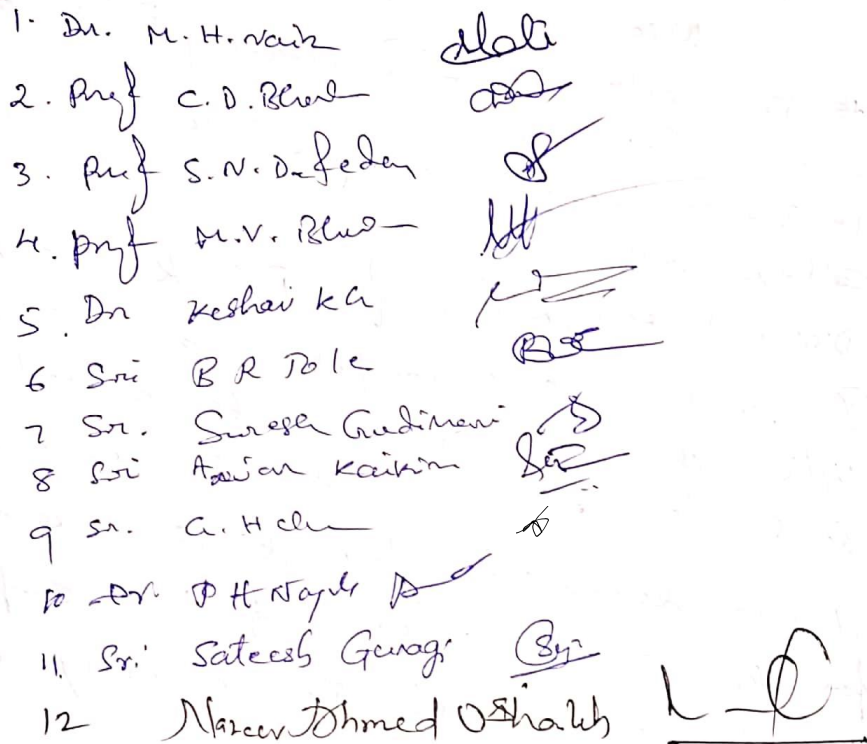 1. Dr. M. H. Naik
2. Prof C. D. Bhat
3. Prof S. N. Dafedar
4. Prof M. V. Bhat
5. Dr Keshav K G
6 Sri B R Tole
7 Sri. Suresh Gudimani
8 Sri Arjun Kaikini
9 Sri. G. H
10 Dr. P H Nayak
11. Sri. Sateesh Gavagi
12 Nazeer Ahmed U Shaikh